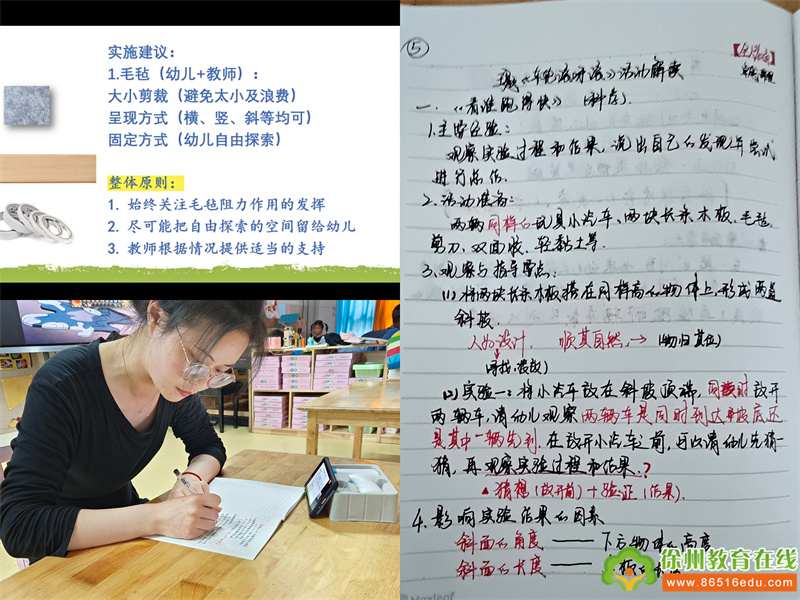 实施建议：
1.毛毡（幼儿+教师）：
大小剪裁（避免太小及浪费）
呈现方式（横、竖、斜等均可）
固定方式（幼儿自由探索）
整体原则：
1. 始终关注毛毡阻力作用的发挥
2. 尽可能把自由探索的空间留给幼儿
3. 教师根据情况提供适当的支持
⑤
活动解读
一、《看谁跑得快》（科学）
1.主要经验：
观察实验过程和结果，说出自己的发现并尝试
进行总结。
2.活动准备：
两辆同样的玩具小汽车、两块长条木板、毛毡、
剪刀、双面胶、轻黏土等。
3.观察与指导要点：
(1)将两块长条木板搭在同样高的物体上，形成两道
斜坡。
人为设计 顺其自然 → (物归其位)
(2)实验一：将小汽车放在斜坡顶端，同时放开
两辆车，请幼儿观察两辆车是同时到达坡底还
是其中一辆先到。在放开小汽车之前，可以请幼儿先猜一
猜，再观察实验过程和结果。？
▲猜想(放开前)+验证(结果)。
4.影响实验结果的因素
斜面的角度 —— 下方物体的高度
斜面的长度 ——
徐州教育在线
www.86516edu.com